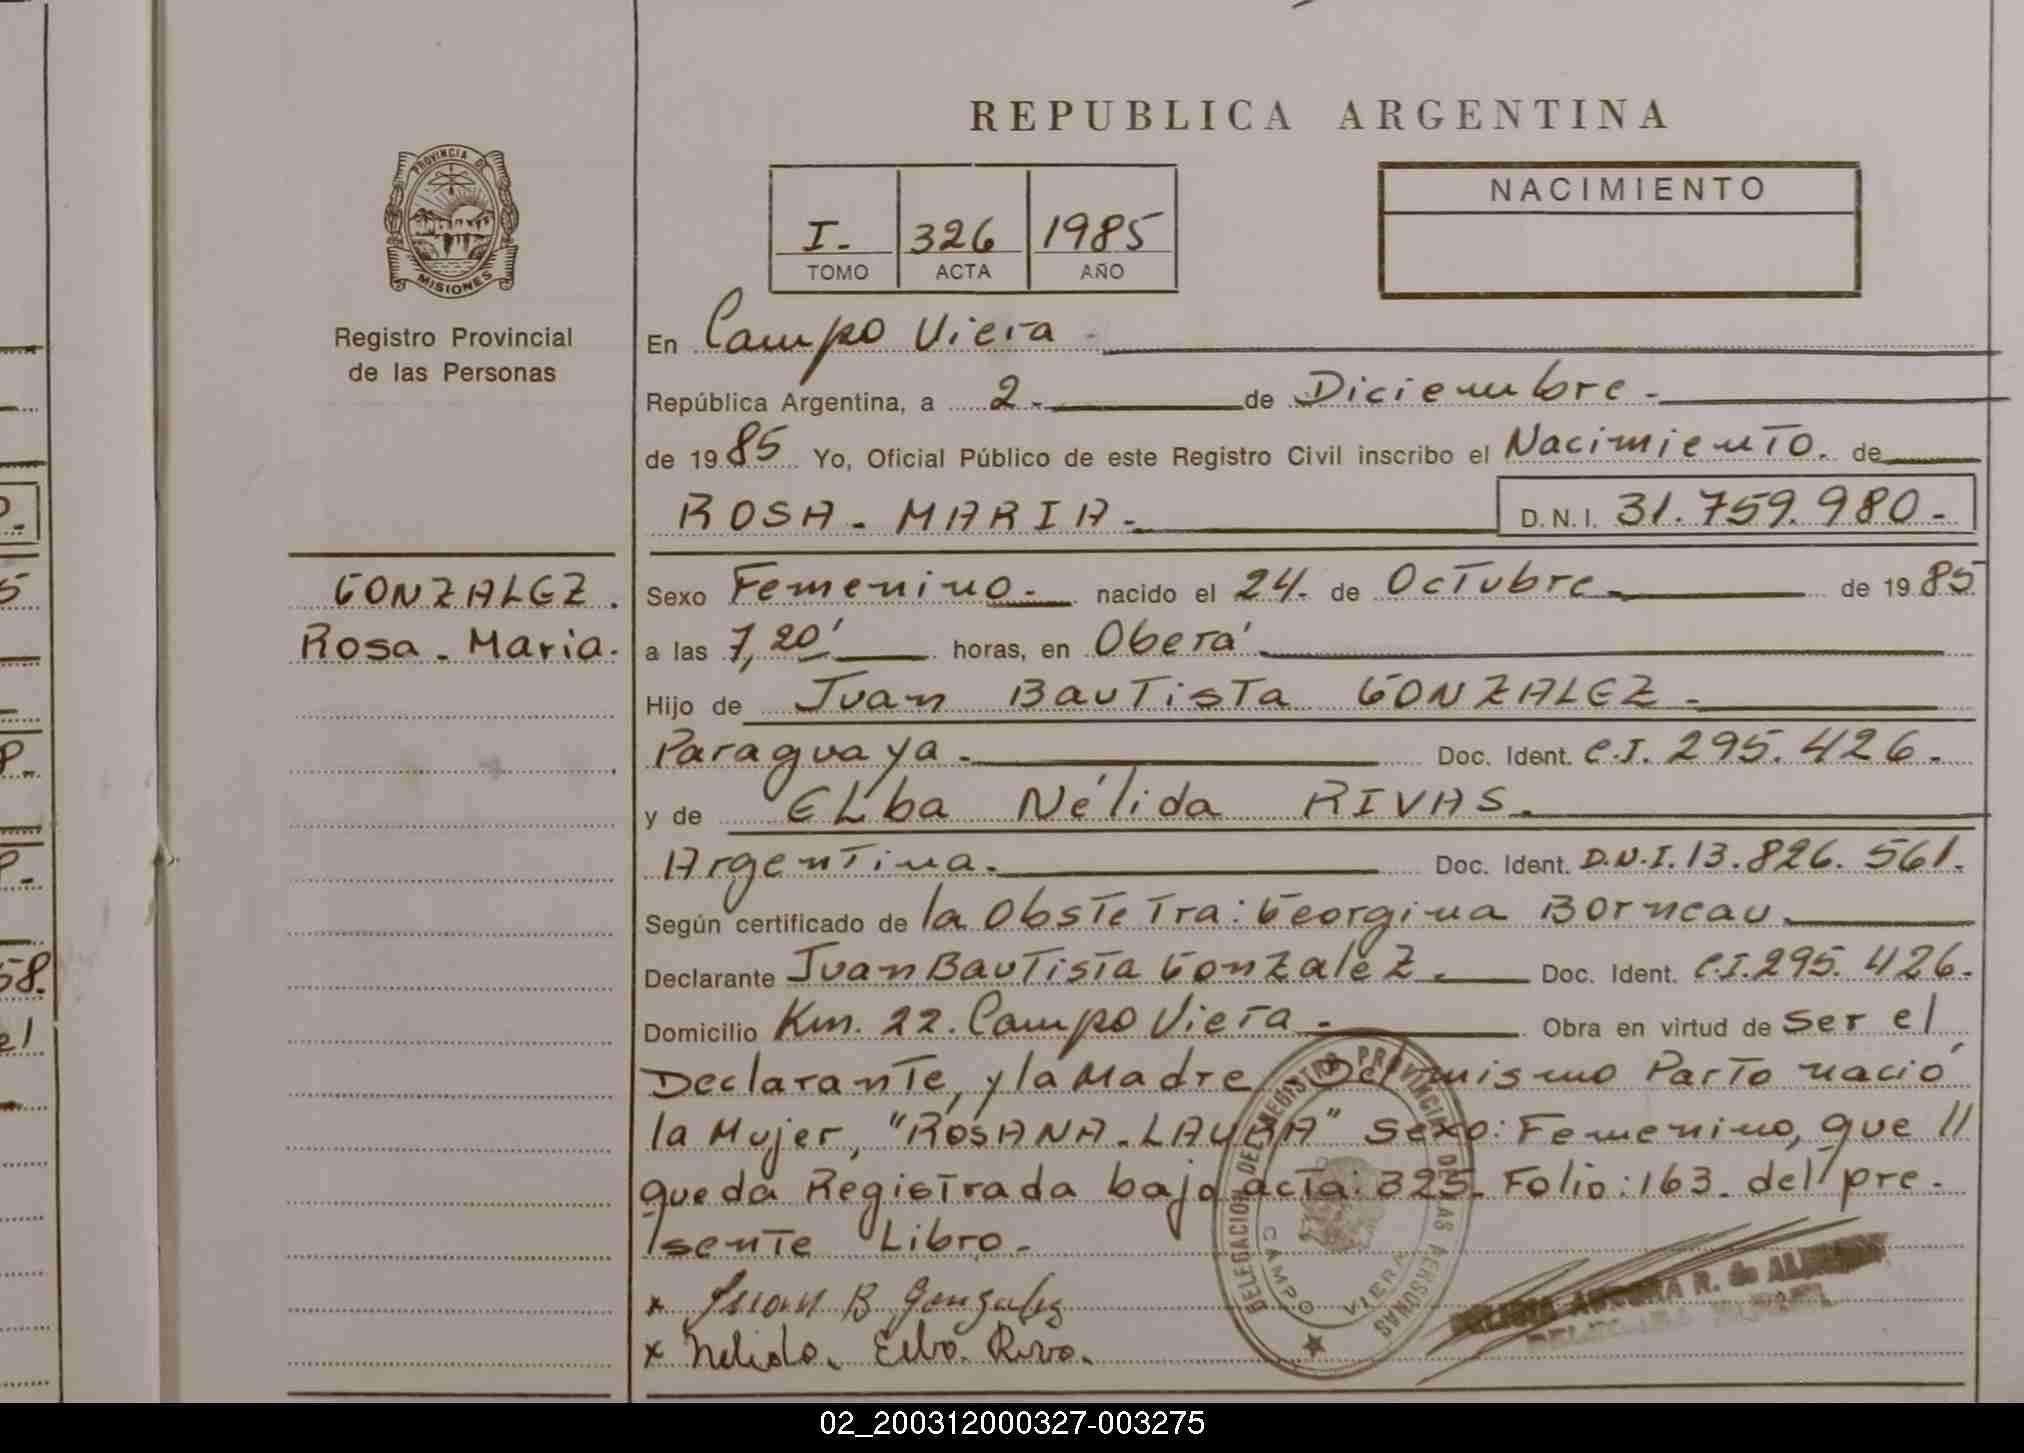 REPUBLICA ARGENTINA
PROVINCIA DE
MISIONES
Registro Provincial
de las Personas
I. 326 1985
TOMO ACTA AÑO
NACIMIENTO
En Campo Viera
República Argentina, a 2 de Diciembre
de 1985 Yo, Oficial Público de este Registro Civil inscribo el Nacimiento. de
ROSA - MARIA D.N.I. 31.759.980
GONZALEZ.
Rosa - Maria.
Sexo Femenino nacido el 24 de Octubre de 1985
a las 7,20' horas, en Oberá
Hijo de Juan Bautista GONZALEZ
Paraguaya Doc. Ident. C.I. 295.426
y de Elba Nélida RIVAS
Argentina Doc. Ident. D.N.I. 13.826.561
Según certificado de la Obstetra: Georgina Borneau
Declarante Juan Bautista Gonzalez Doc. Ident. C.I. 295.426
Domicilio Km. 22. Campo Viera Obra en virtud de ser el
Declarante, y la Madre. Del mismo Parto nació
la Mujer, "ROSANA - LAURA" Sexo: Femenino, que //
queda Registrada bajo acta: 325. Folio: 163. del pre-
sente Libro.
x Juan B Gonzalez
x Nelida. Elba. Riva.
DELEGACION DEL REGISTRO PROVINCIAL DE LAS PERSONAS
CAMPO VIERA
R. de
02_200312000327-003275